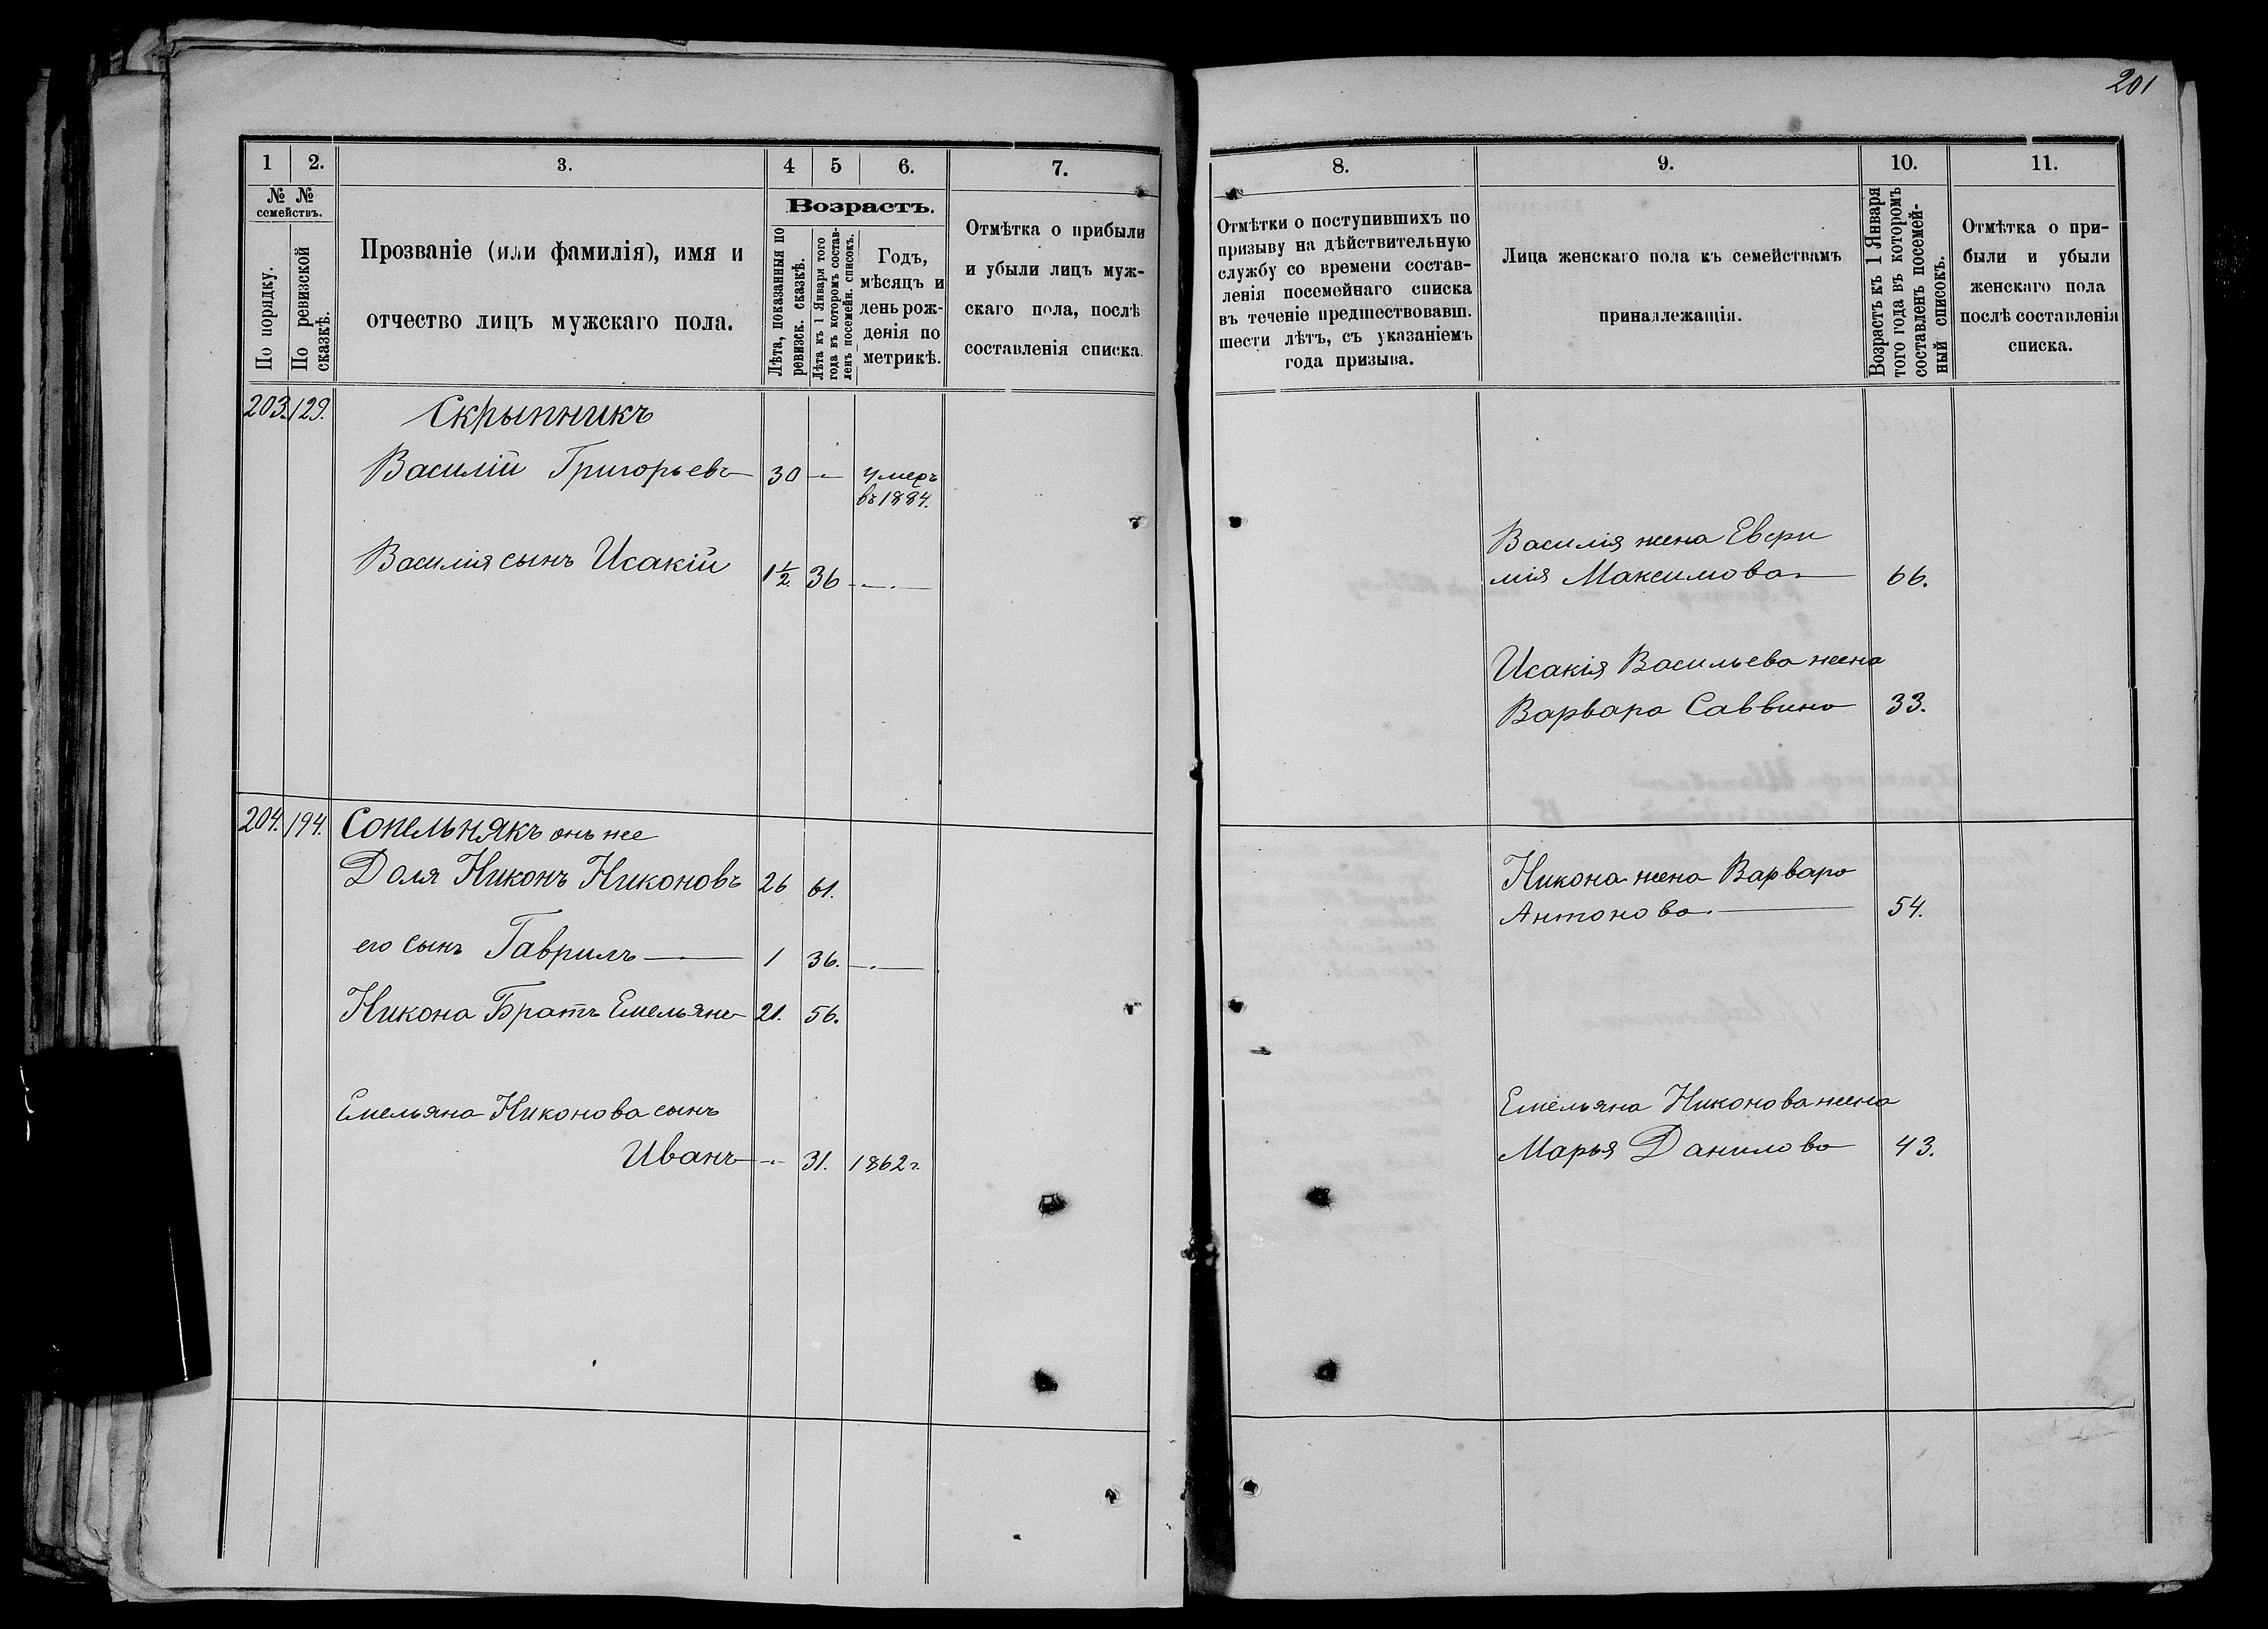 201
1 2. 3. 4 5 6. 7.
№ № семействъ.
По порядку.
По ревизской сказкѣ.
Прозваніе (или фамилія), имя и
отчество лицъ мужскаго пола.
Возрастъ.
Лѣта, показанныя по ревизск. сказкѣ.
Лѣта къ 1 Января того года въ которомъ составленъ посемейн. списокъ.
Годъ,
мѣсяцъ и
день рож-
денія по
метрикѣ.
Отмѣтка о прибыли
и убыли лицъ муж-
скаго пола, послѣ
составленія списка.
203. 129. Скрыпникъ
Василій Григорьевъ 30 — умеръ
въ 1884.
Василія сынъ Исакій 1½ 36 —
204. 194. Сопельнякъ онъ же
Доля Никонъ Никоновъ 26 61.
его сынъ Гаврилъ — 1 36. —
Никона Братъ Емельянъ 21. 56.
Емельяна Никонова сынъ
Иванъ — 31. 1862 г.
8. 9. 10. 11.
Отмѣтки о поступившихъ по
призыву на дѣйствительную
службу со времени состав-
ленія посемейнаго списка
въ теченіе предшествовавш.
шести лѣтъ, съ указаніемъ
года призыва.
Лица женскаго пола къ семействамъ
принадлежащія.
Возрастъ къ 1 Января
того года въ которомъ
составленъ посемей-
ный списокъ.
Отмѣтка о при-
были и убыли
женскаго пола
послѣ составленія
списка.
Василія жена Евфи
мія Максимова — 66.
Исакія Васильева жена
Варвара Саввина 33.
Никона жена Варвара
Антонова. — 54.
Емельяна Никонова жена
Марья Данилова 43.